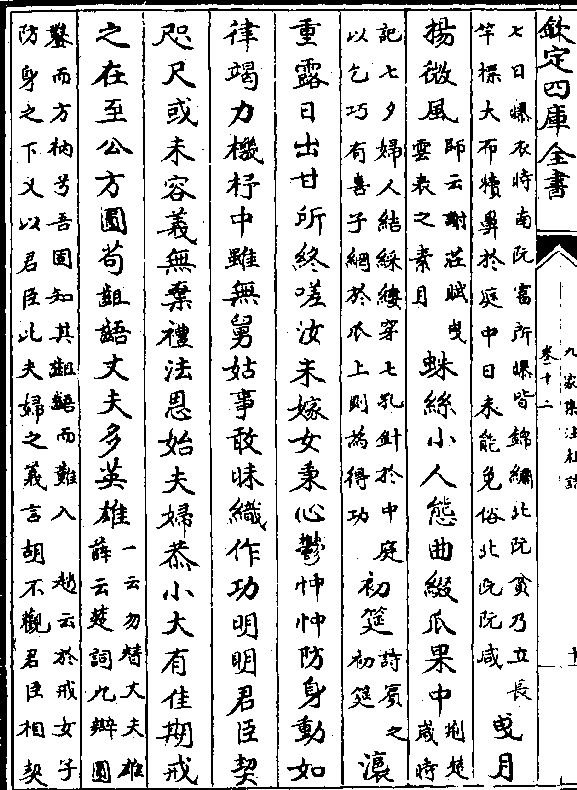 欽定四庫全書
九家集注杜詩
卷十二
七日曝衣時南阮富所曝皆錦繡北阮貧乃立長
竿標大布犢鼻於庭中日未能免俗北阮阮咸
曳月
揚微風
師云謝莊賦曳
雲表之素月
蛛絲小人態曲綴瓜果中
荆楚
歲時
記七夕婦人結綵縷穿七孔針於中庭
以乞巧有喜子網於瓜上則為得功
初筵
詩賓之
初筵
瀼
重露日出甘所終嗟汝未嫁女秉心鬱忡忡防身動如
律竭力機杼中雖無舅姑事敢昧織作功明明君臣契
咫尺或未容義無棄禮法恩始夫婦恭小大有佳期戒
之在至公方圓苟齟齬丈夫多英雄
一云勿替丈夫雄
薛云楚詞九辯圓
鑿而方枘兮吾固知其齟齬而難入 趙云於戒女子
防身之下又以君臣比夫婦之義言胡不觀君臣相契